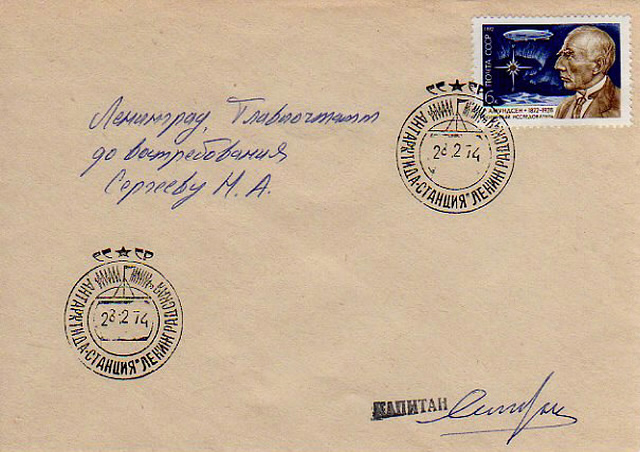 1972
ПОЧТА СССР
АМУНДСЕН • 1872-1928
ИССЛЕДОВАТЕЛЬ
Ленинград, Главпочтамт
до востребования
Сергееву М. А.
СС ★ СР
АНТАРКТИДА-СТАНЦИЯ "ЛЕНИНГРАДСКАЯ
28.2 74
СС ★ СР
АНТАРКТИДА-СТАНЦИЯ "ЛЕНИНГРАДСКАЯ
28.2 74
КАПИТАН